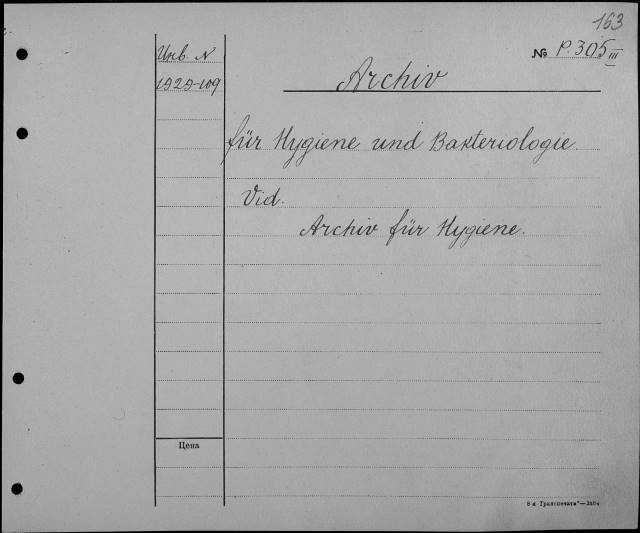 163
№ P.305 III
Инв. N
1929-109
Archiv
für Hygiene und Bakteriologie.
Vid.
Archiv für Hygiene.
Цена